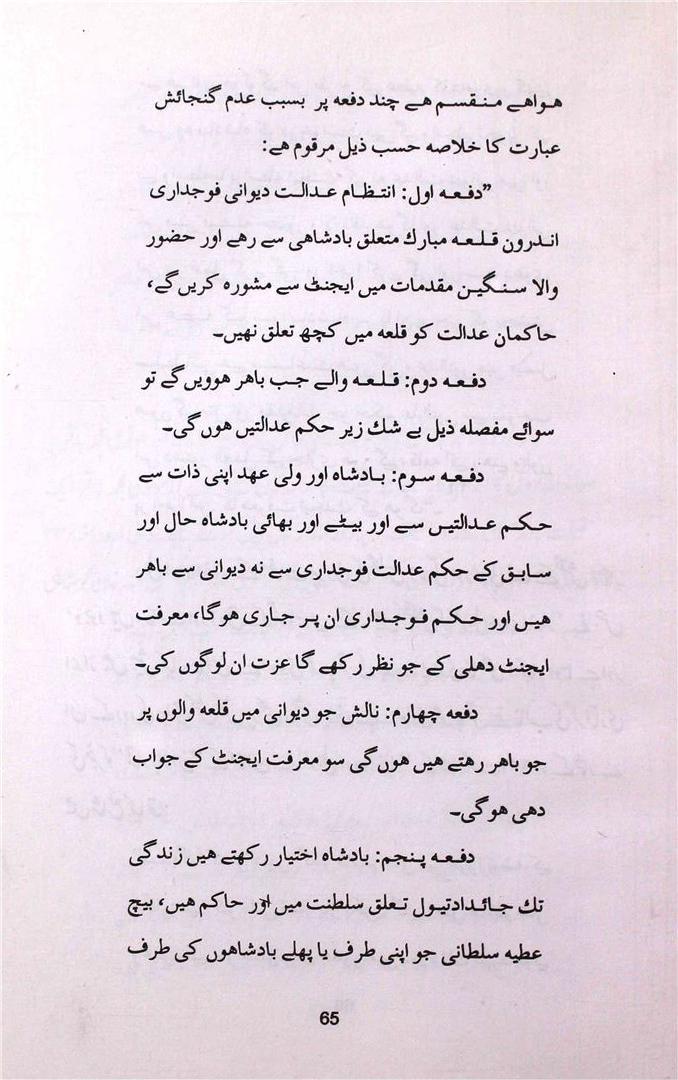 ہواہے منقسم ہے چند دفعہ پر بسبب عدم گنجائش
عبارت کا خلاصہ حسب ذیل مرقوم ہے:
”دفعہ اول: انتظام عدالت دیوانی فوجداری
اندرون قلعہ مبارك متعلق بادشاہی سے رہے اور حضور
والا سنگین مقدمات میں ایجنٹ سے مشورہ کریں گے،
حاکمان عدالت کو قلعہ میں کچھ تعلق نہیں۔
دفعہ دوم: قلعہ والے جب باہر ھوویں گے تو
سوائے مفصلہ ذیل بے شك زیر حکم عدالتیں ہوں گی۔
دفعہ سوم: بادشاہ اور ولی عھد اپنی ذات سے
حکم عدالتیں سے اور بیٹے اور بھائی بادشاہ حال اور
سابق کے حکم عدالت فوجداری سے نہ دیوانی سے باہر
ہیں اور حکم فوجداری ان پر جاری ہوگا، معرفت
ایجنٹ دھلی کے جو نظر رکھے گا عزت ان لوگوں کی۔
دفعہ چہارم: نالش جو دیوانی میں قلعہ والوں پر
جو باہر رہتے ہیں ہوں گی سو معرفت ایجنٹ کے جواب
دھی ہوگی۔
دفعہ پنجم: بادشاہ اختیار رکھتے ہیں زندگی
تك جائدادتیول تعلق سلطنت میں اور حاکم ہیں، بیچ
عطیہ سلطانی جو اپنی طرف یا پہلے بادشاہوں کی طرف
65